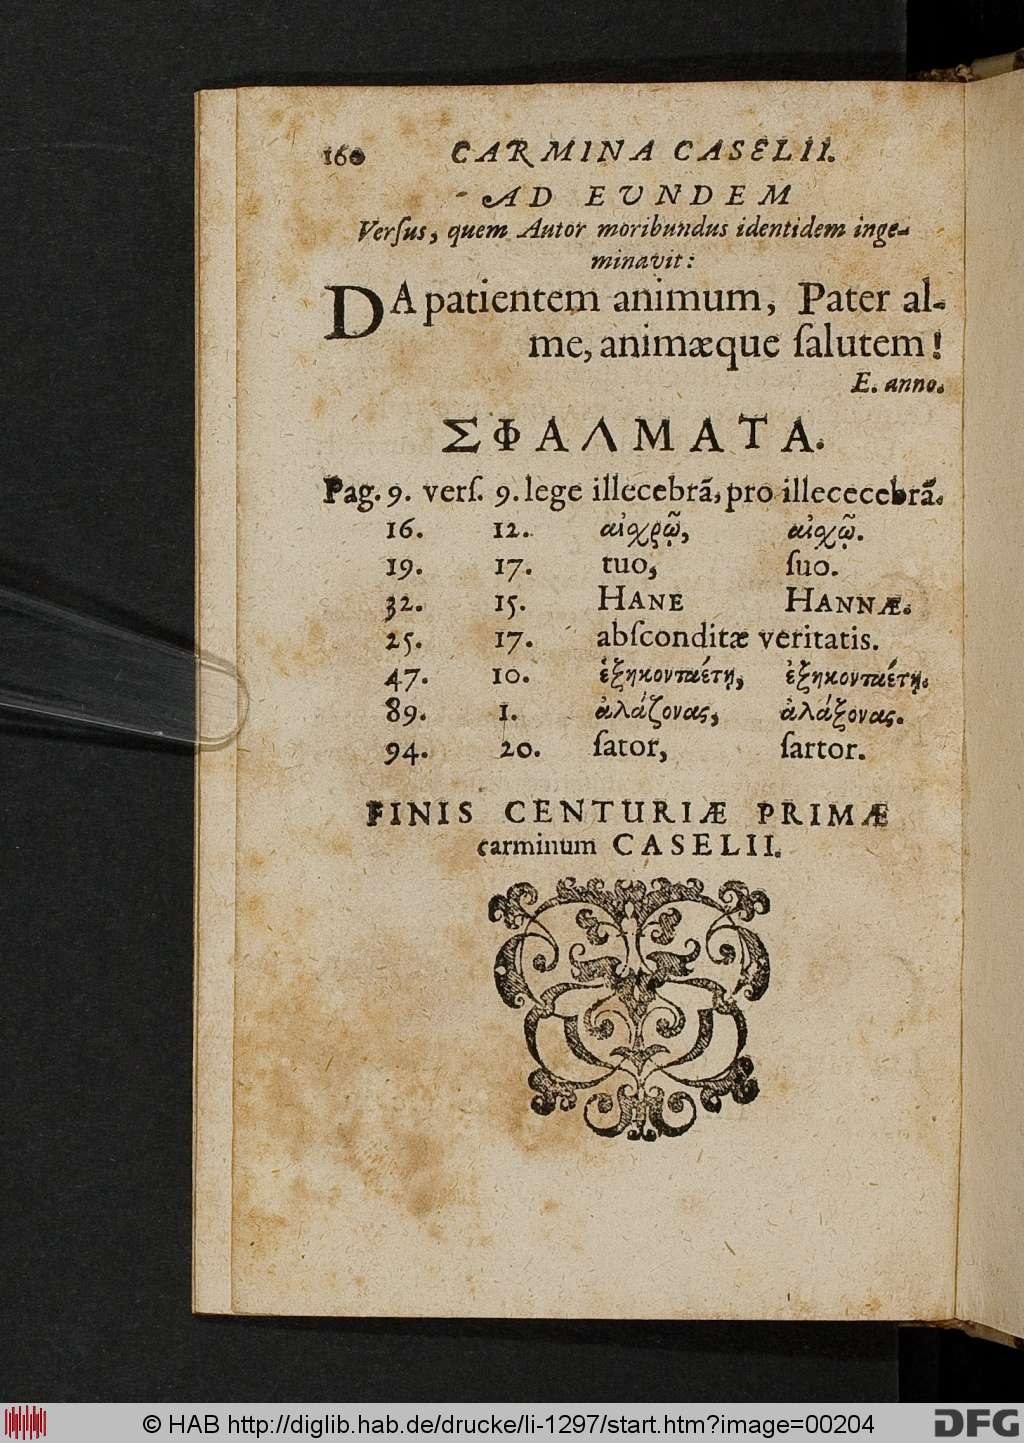 160 CARMINA CASELII.
AD EUNDEM
Verſus, quem Autor moribundus identidem inge-
minavit:
DA patientem animum, Pater al-
me, animæque ſalutem!
E. anno.
ΣΦΑΛΜΑΤΑ.
Pag. 9. verſ. 9. lege illecebrã, pro illececebrã.
16. 12. αἰχρῷ, αἰχῷ.
19. 17. tuo, ſuo.
32. 15. HANE HANNÆ.
25. 17. abſconditæ veritatis.
47. 10. ἑξηκονταέτῃ, ἐξηκονταέτῃ.
89. 1. ἀλάζονας, ἀλάξονας.
94. 20. ſator, ſartor.
FINIS CENTURIÆ PRIMÆ
carminum CASELII.
© HAB http://diglib.hab.de/drucke/li-1297/start.htm?image=00204
DFG